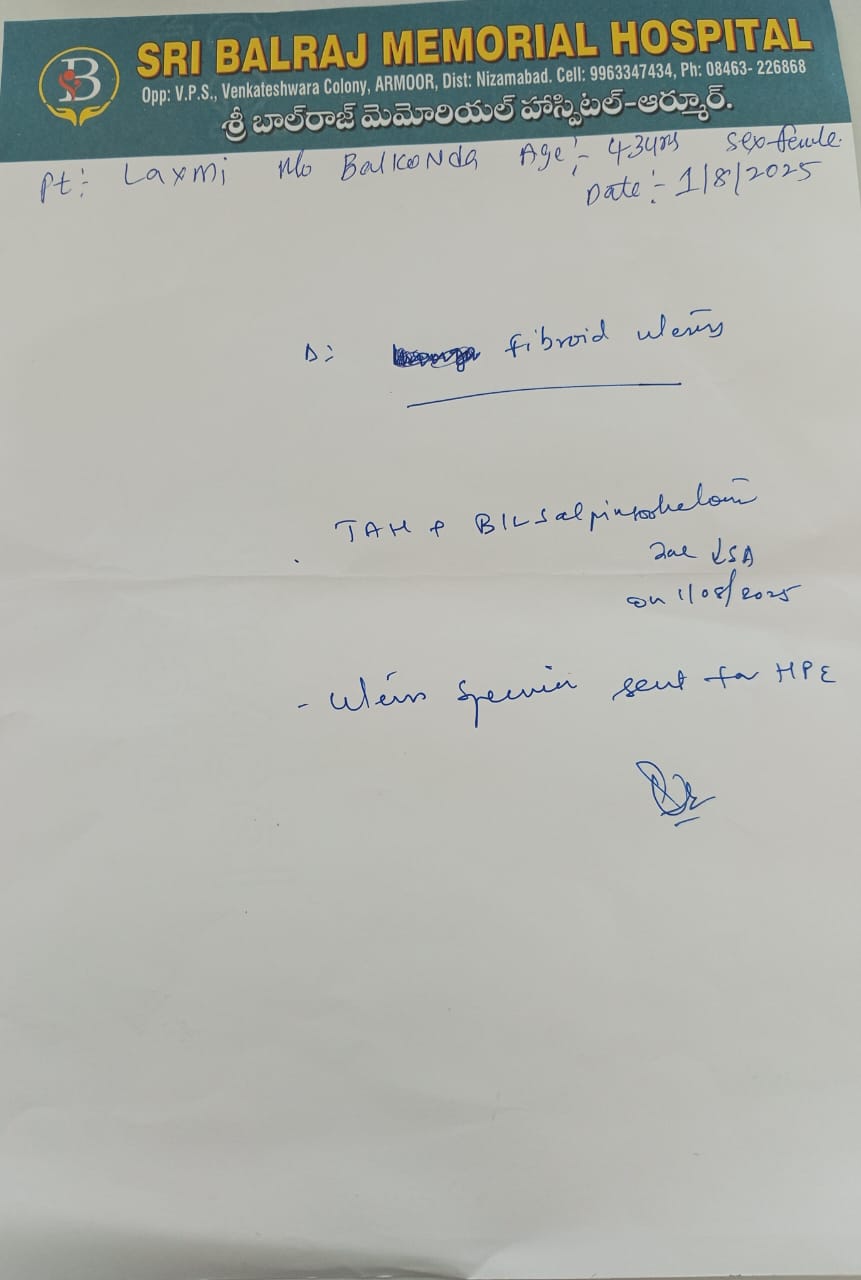 B
SRI BALRAJ MEMORIAL HOSPITAL
Opp: V.P.S., Venkateshwara Colony, ARMOOR, Dist: Nizamabad. Cell: 9963347434, Ph: 08463- 226868
శ్రీ బాల్‌రాజ్ మెమోరియల్ హాస్పిటల్-ఆర్మూర్.
Pt:- Laxmi R/o Balkonda Age:- 43yrs Sex-female.
Date:- 1/8/2025
D: fibroid uterus
TAH + B/L
SA
on 1/08/2025
- uterus specimen sent for HPE